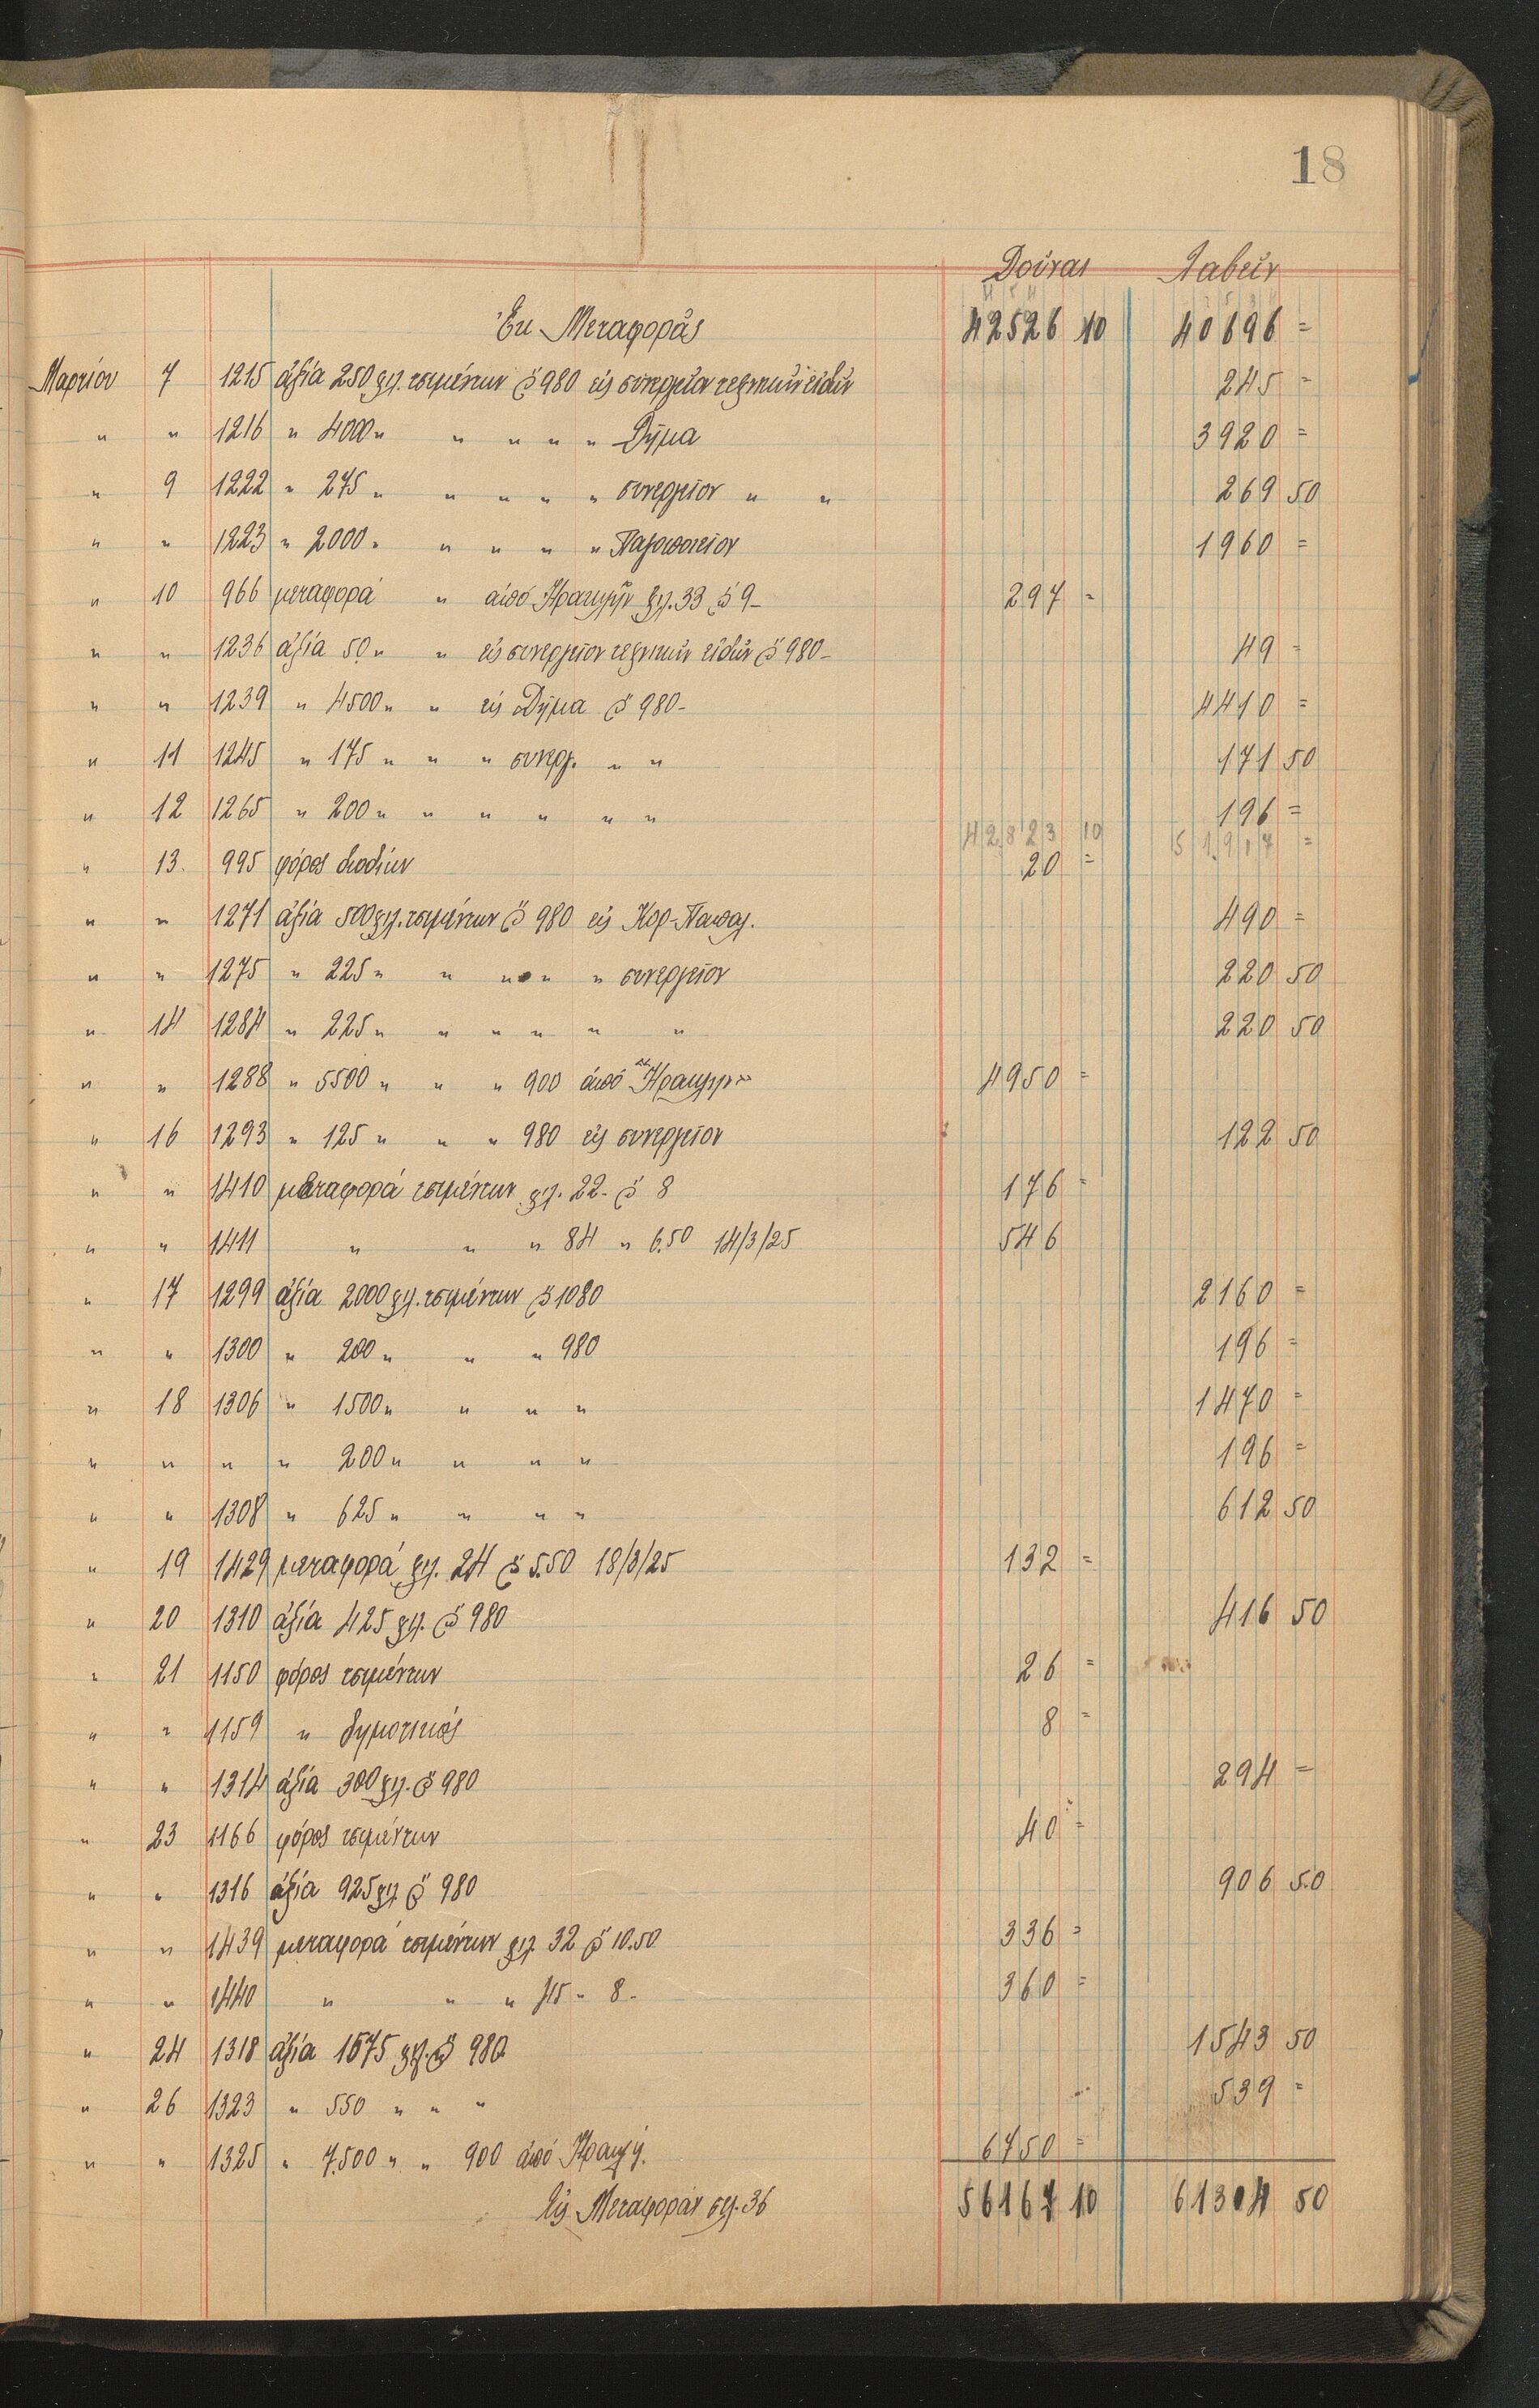 18
Δοῦναι Λαβεῖν
Ἐκ Μεταφορᾶς 42526 10 40696 =
Μαρτίου 7 1215 ἀξία 250 χιλ. τσιμέντων @ 980 εἰς συνεργεῖον τεχνικῶν εἰδῶν 245 =
" " 1216 " 4000 " " " " " Δῆμα 3920 =
" 9 1222 " 275 " " " " " συνεργεῖον " " 269 50
" " 1223 " 2000 " " " " " Παγοποιεῖον 1960 =
" 10 966 μεταφορά " ἀπό χιλ. 33 @ 9- 297 =
" " 1236 ἀξία 50 " " εἰς συνεργεῖον τεχνικῶν εἰδῶν @ 980- 49 =
" " 1239 " 4500 " " εἰς Δῆμα @ 980- 4410 =
" 11 1245 " 175 " " " συνεργ. " " 171 50
" 12 1265 " 200 " " " " " " 196 =
42823 10 51917 =
" 13. 995 φόρος διοδίων 20 =
" " 1271 ἀξία 500 χιλ. τσιμέντων @ 980 εἰς Κορ-Παπαγ. 490 =
" " 1275 " 225 " " " " " συνεργεῖον 220 50
" 14 1284 " 225 " " " " " " 220 50
" " 1288 " 5500 " " " 900 ἀπό 4950 =
" 16 1293 " 125 " " " 980 εἰς συνεργεῖον 122 50
" " 1410 μεταφορά τσιμέντων χιλ. 22- @ 8 176 =
" " 1411 " " " 84 " 6.50 14/3/25 546
" 17 1299 ἀξία 2000 χιλ. τσιμέντων @ 1080 2160 =
" " 1300 " 200 " " " 980 196 =
" 18 1306 " 1500 " " " " 1470 =
" " " " 200 " " " " 196 =
" " 1308 " 625 " " " " 612 50
" 19 1429 μεταφορά χιλ. 24 @ 5.50 18/3/25 132 =
" 20 1310 ἀξία 425 χιλ. @ 980 416 50
" 21 1150 φόρος τσιμέντων 26 =
" " 1159 " δημοτικός 8 =
" " 1314 ἀξία 300 χιλ. @ 980 294 =
" 23 1166 φόρος τσιμέντων 40 =
" " 1316 ἀξία 925 χιλ @ 980 906 50
" " 1439 μεταφορά τσιμέντων χιλ. 32 @ 10.50 336 =
" " 1440 " " " 45 " 8- 360 =
" 24 1318 ἀξία 1575 χιλ. @ 980 1543 50
" 26 1323 " 550 " " " 539 =
" " 1325 " 7.500 " " 900 ἀπό 6750 =
Εἰς Μεταφοράν σελ. 36 56167 10 61304 50